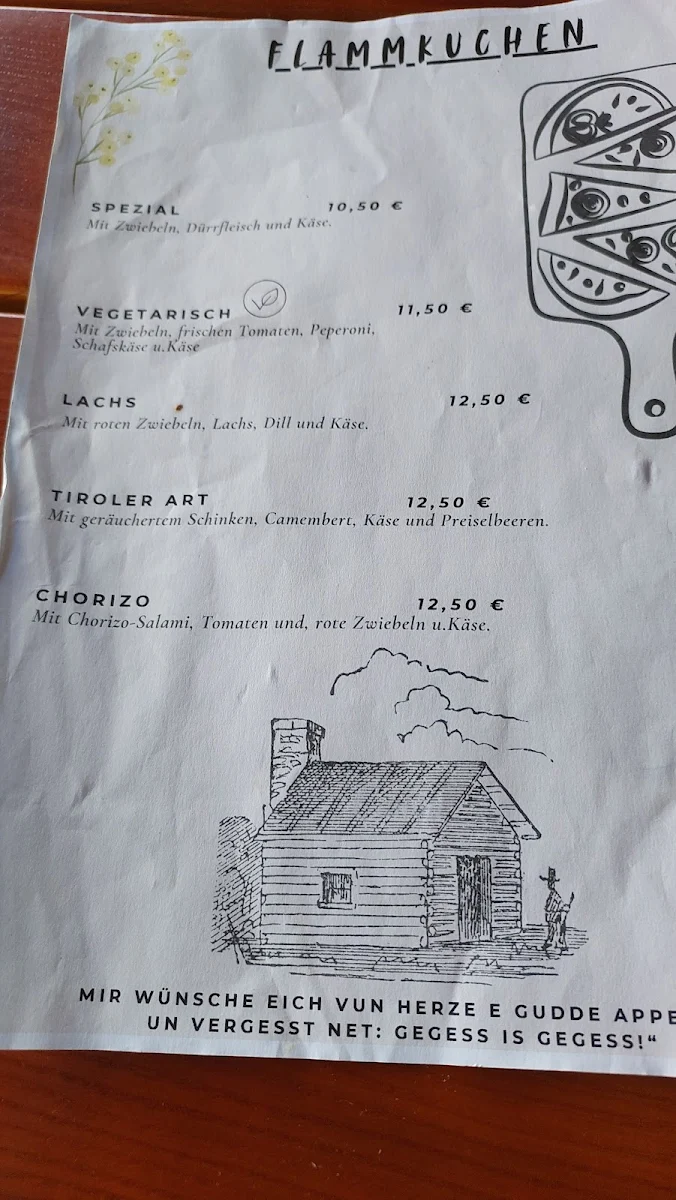 FLAMMKUCHEN
SPEZIAL 10,50 €
Mit Zwiebeln, Dürrfleisch und Käse.
VEGETARISCH 11,50 €
Mit Zwiebeln, frischen Tomaten, Peperoni,
Schafskäse u.Käse
LACHS 12,50 €
Mit roten Zwiebeln, Lachs, Dill und Käse.
TIROLER ART 12,50 €
Mit geräuchertem Schinken, Camembert, Käse und Preiselbeeren.
CHORIZO 12,50 €
Mit Chorizo-Salami, Tomaten und, rote Zwiebeln u.Käse.
MIR WÜNSCHE EICH VUN HERZE E GUDDE APPE
UN VERGESST NET: GEGESS IS GEGESS!“